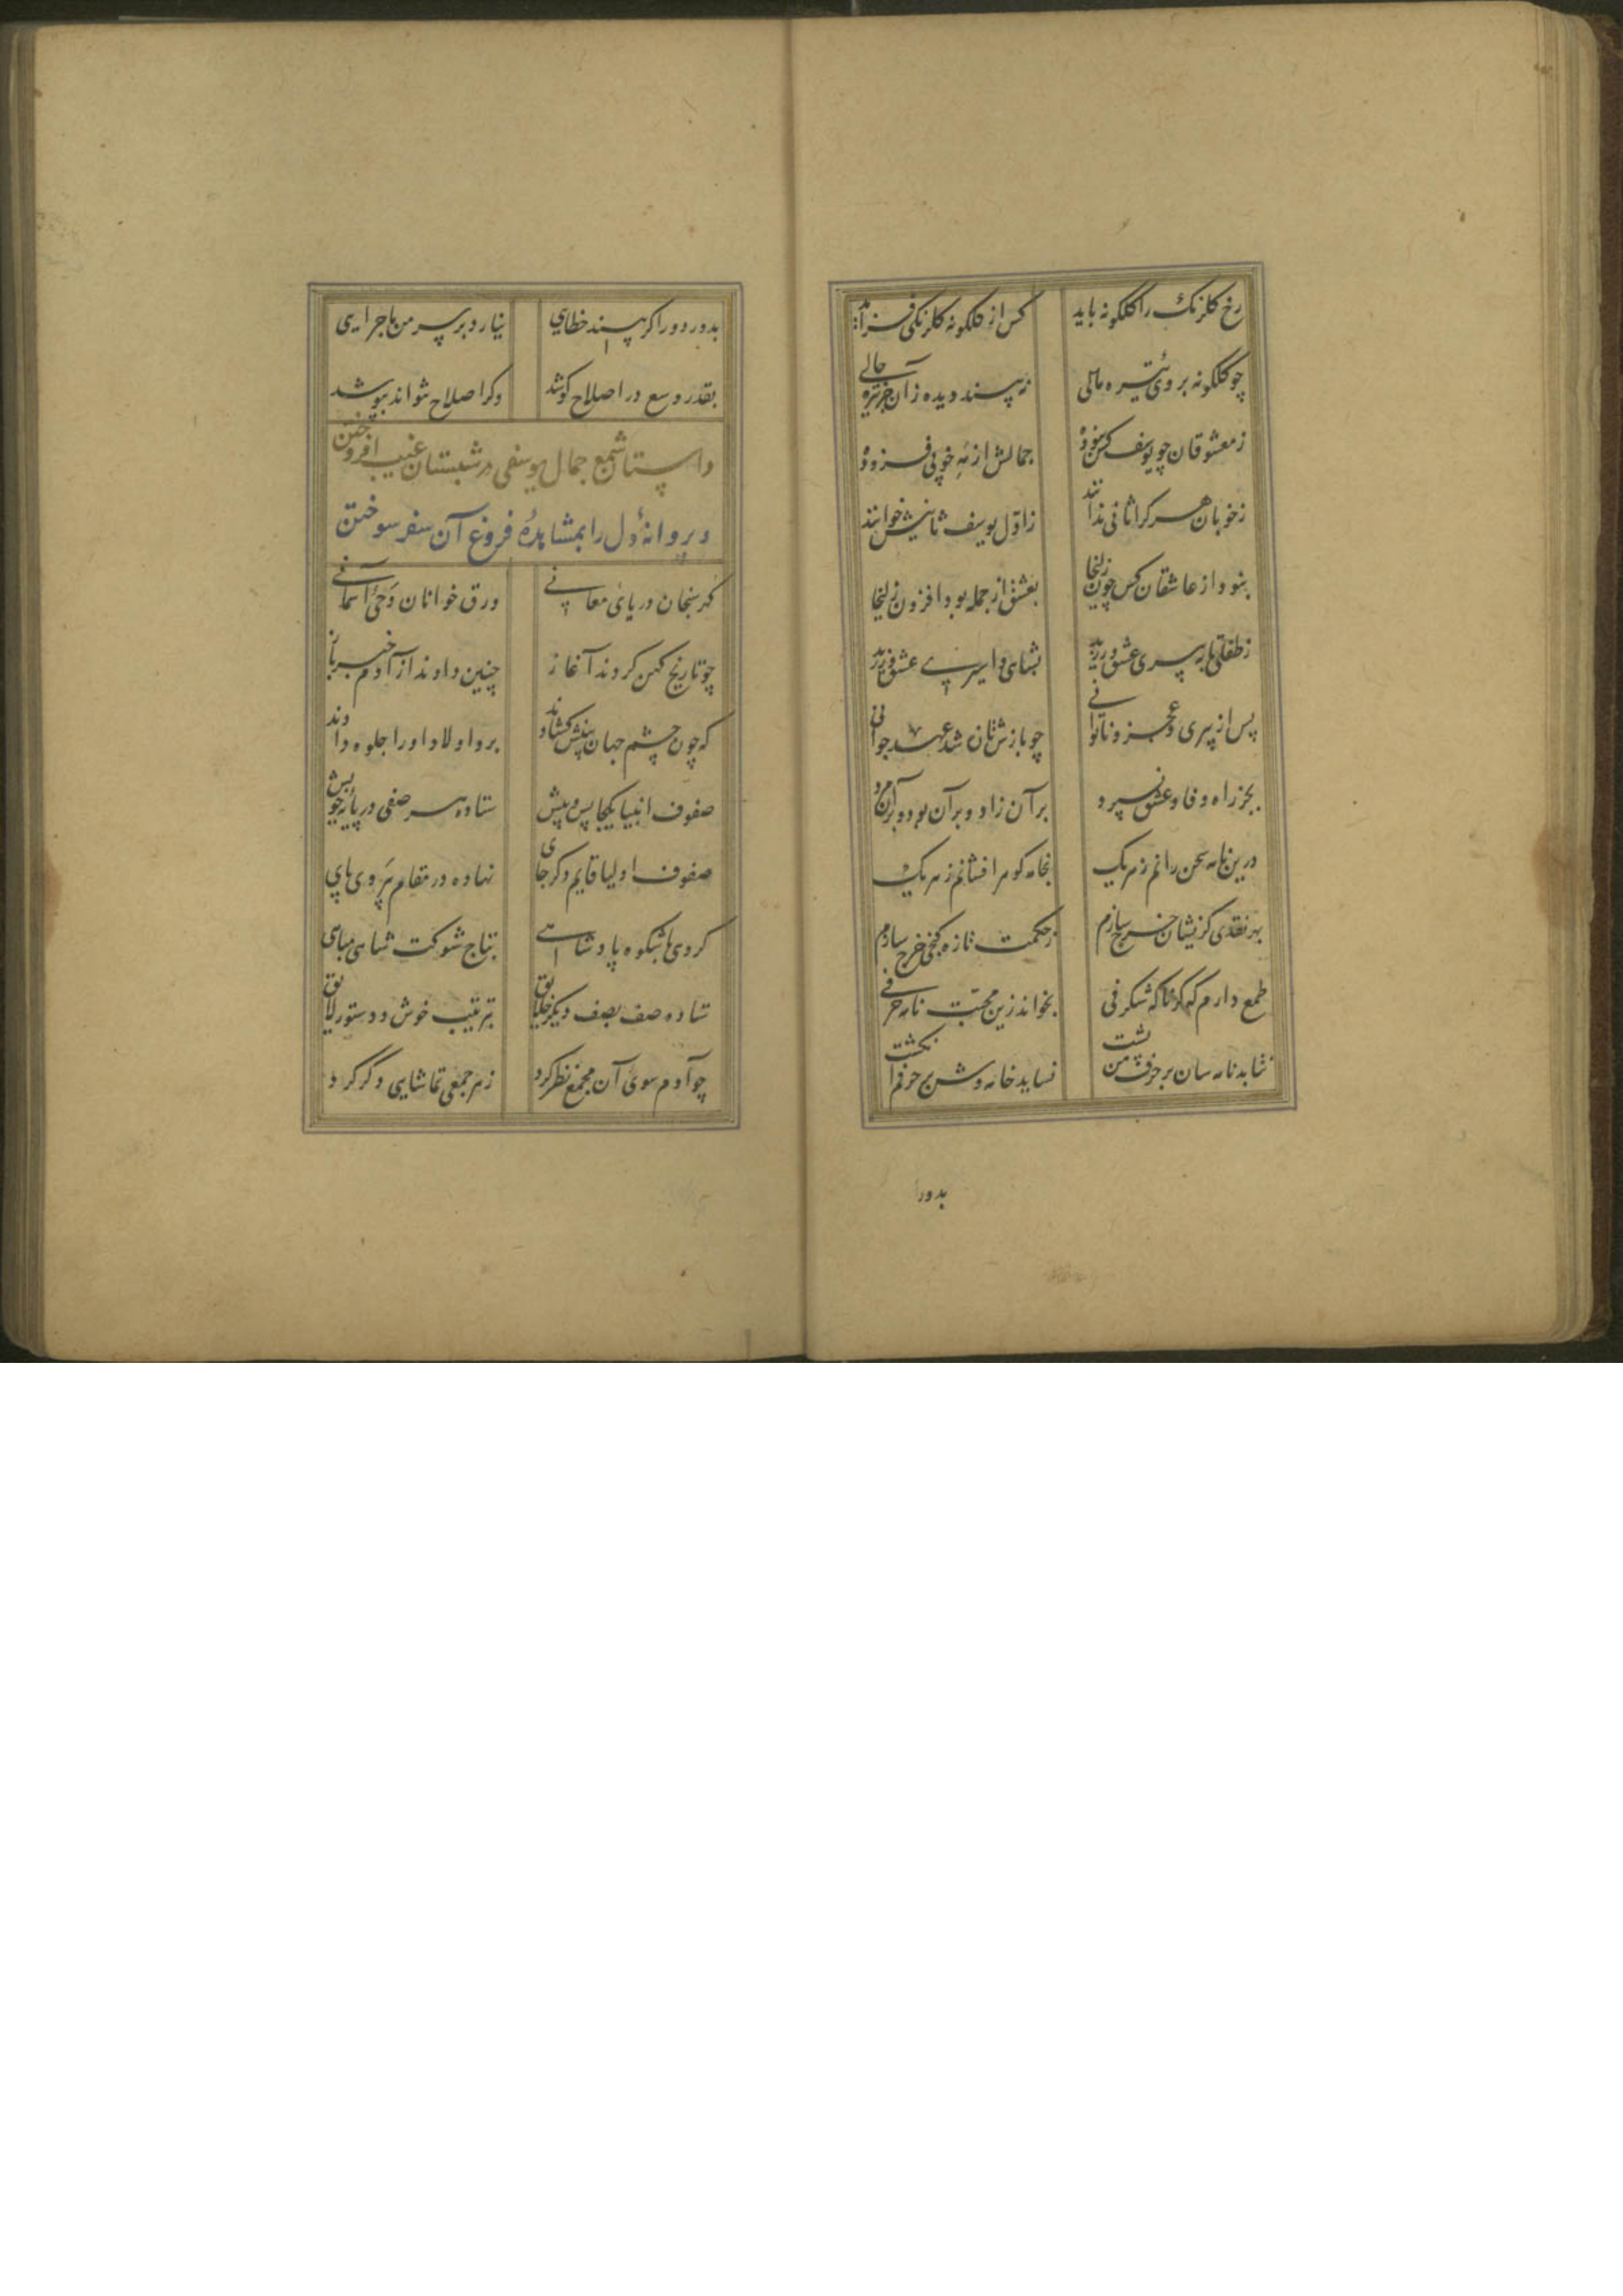 رخ گلرنگ را گلگونه باید کس از گلگونه گلرنگی فزاید
چو گلگونه بروی تیره مالی نه پسند دیده زان جز تیره حالی
ز معشوقان چو یوسف کس نبوده جمالش از همه خوبی فزوده
ز خوبان هر کرا ثانی ندانند ز اول یوسف ثانیش خوانند
نبود از عاشقان کس چون زلیخا بعشق از جمله بود افزون زلیخا
ز طفلی تا به پیری عشق ورزید بشاهی و اسیری عشق ورزید
پس از پیری و عجز و ناتوانی چو بازش تازه شد عهد جوانی
بجز راه وفا و عشق نسپرد بر آن زاد و بر آن بود و بر آن مرد
درین نامه سخن رانم ز هر یک بخامه گوهر افشانم ز هر یک
بهر نقدی کزیشان خرج سازم ز حکمت تازه گنجی خرج سازم
طمع دارم که گر ناگه شگرفی بخواند زین محبت نامه حرفی
نتابد نامه سان بر حرف من پشت نساید خامه وش بر حرفم انگشت
بدور
بدور دور اگر بیند خطایی نیارد بر سر من ماجرایی
بقدر وسع در اصلاح کوشد وگر اصلاح نتواند بپوشد
داستان شمع جمال یوسفی در شبستان غیب افروختن
و پروانهٔ دل را بمشاهدهٔ فروغ آن سفر سوختن
گهر سنجان دریای معانی ورق خوانان وحی آسمانی
چو تاریخ کهن کردند آغاز چنین دادند از آدم خبر باز
که چون چشم جهان بینش گشادند برو اولاد او را جلوه دادند
صفوف انبیا یکجا پس و پیش ستاده هر صفی در پایه خویش
صفوف اولیا قایم دگر جای نهاده در مقام پیروی پای
گروهی با شکوه پادشاهی بتاج شوکت شاهی مباهی
ستاده صف بصف دیگر خلایق بترتیب خوش و دستور لایق
چو آدم سوی آن مجمع نظر کرد ز هر جمعی تماشایی دگر کرد